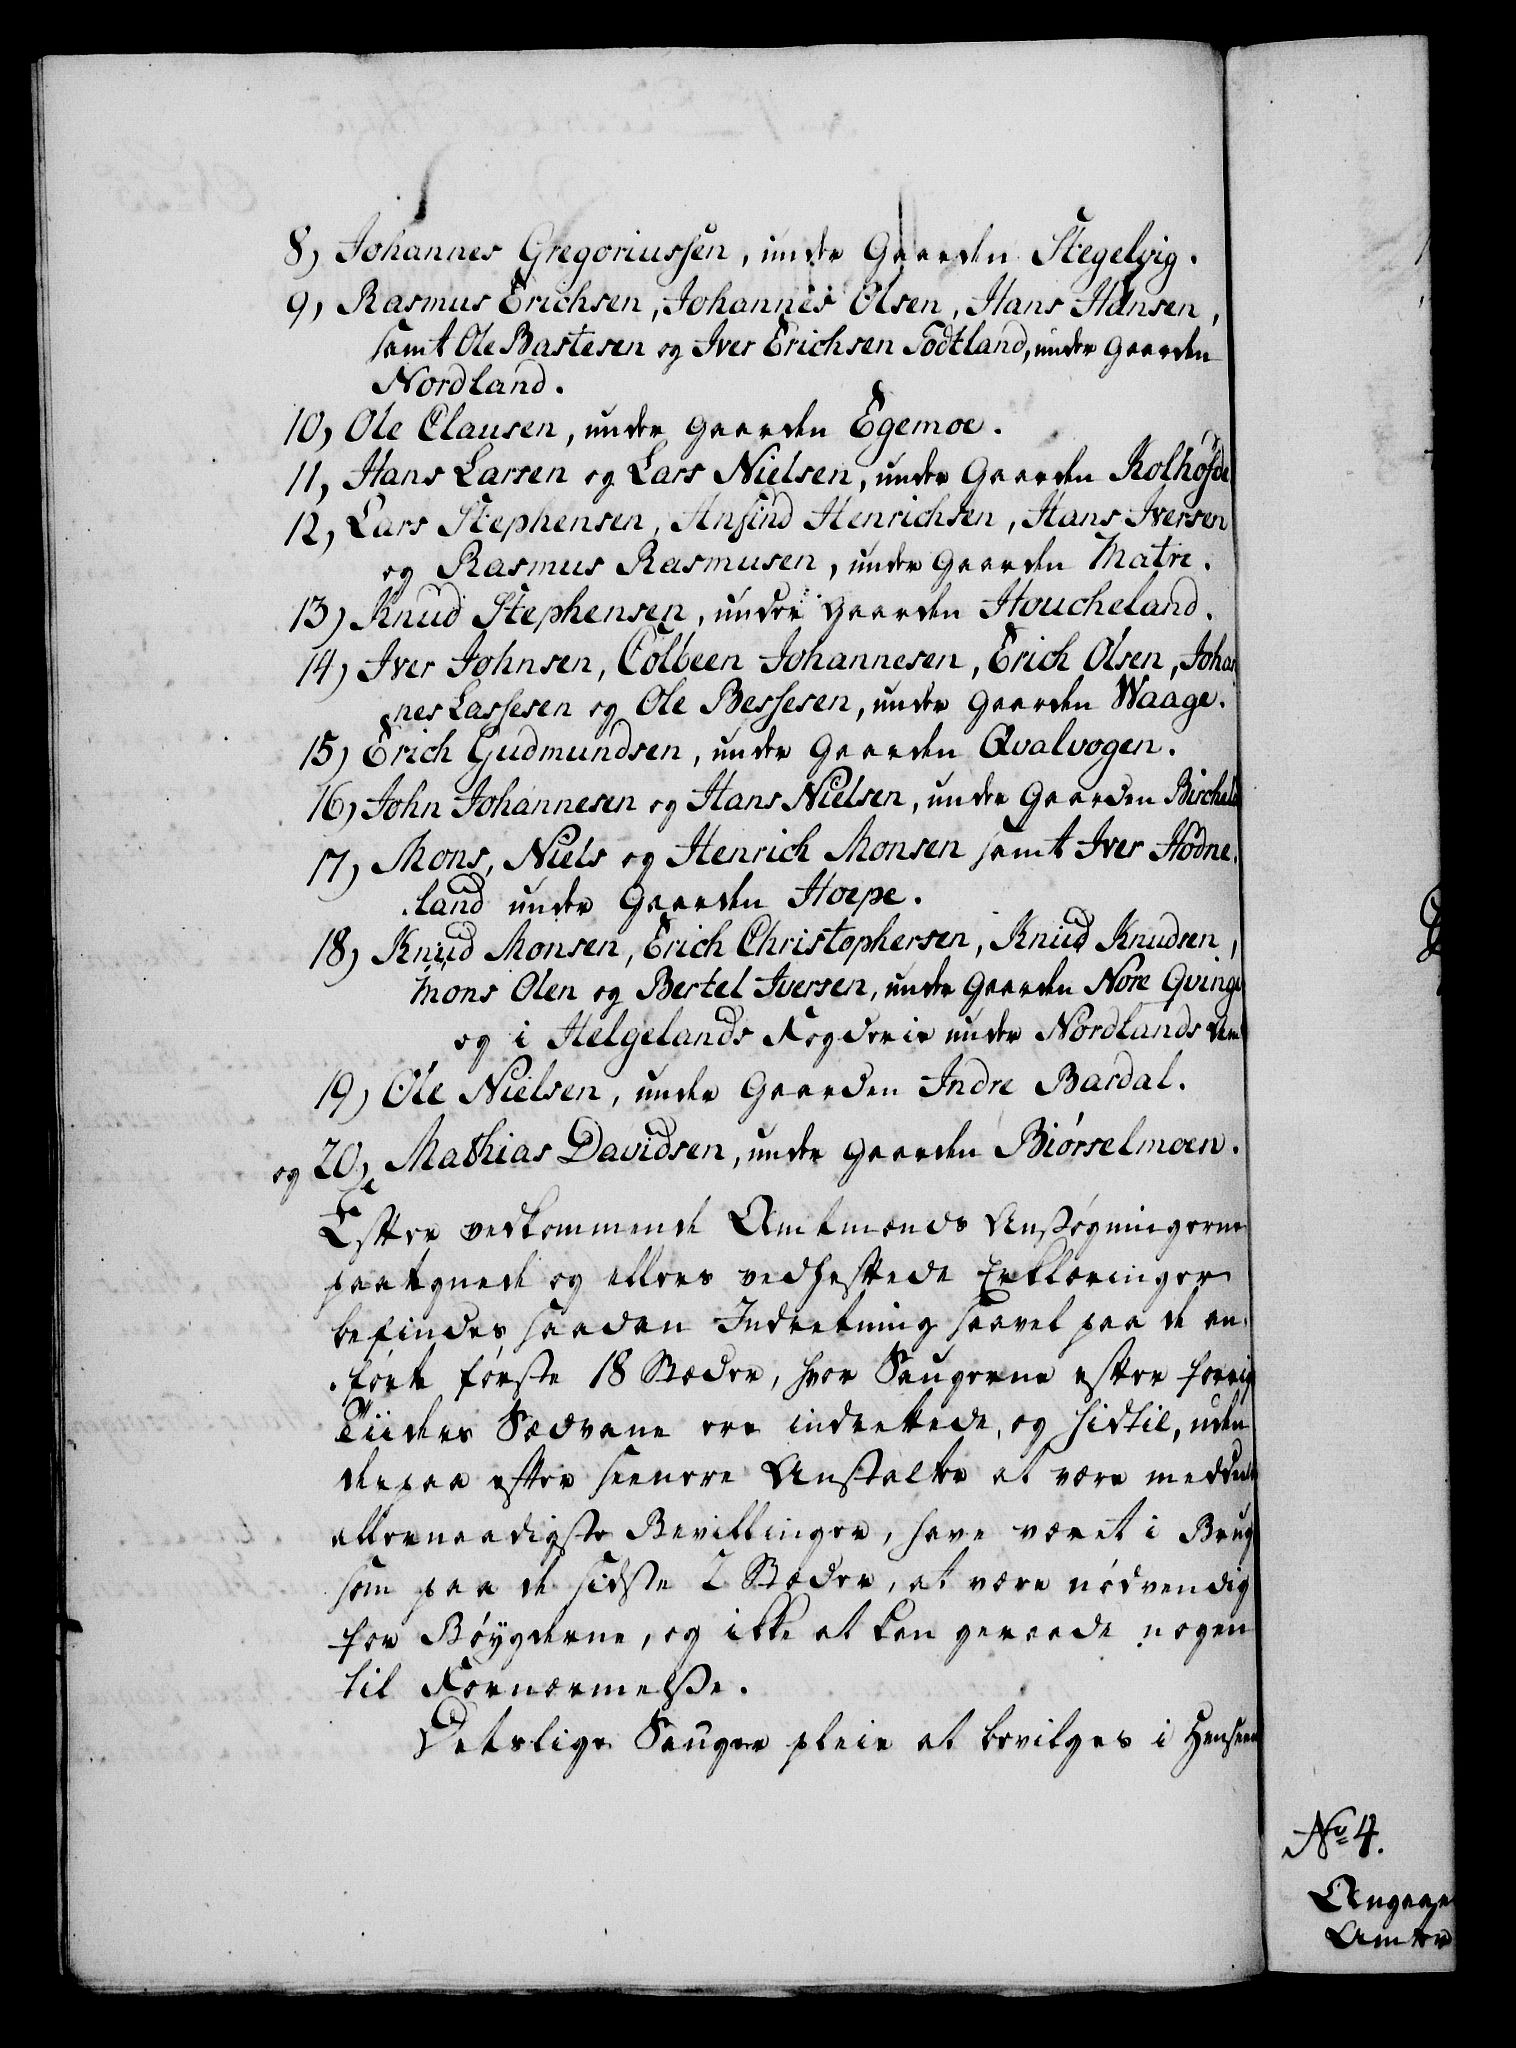 8, Johannes Gregoriussen, under Gaarden Stegelvig.
9, Rasmus Erichsen, Johannes Olsen, Hans Hansen,
samt Ole Bastesen og Iver Erichsen Todtland, under Gaarden
Nordland.
10, Ole Clausen, under Gaarden Egemoe.
11, Hans Larsen og Lars Nielsen, under Gaarden Kolhofde
12, Lars Stephensen, Ansind Henrichsen, Hans Iversen
og Rasmus Rasmusen, under Gaarden Matre.
13) Knud Stephensen, under Gaarden Houcheland.
14) Iver Johnsen, Colbeen Johannesen, Erich Olsen, Johan
nes Lassesen og Ole Bessesen, under Gaarden Waage.
15) Erich Gudmundsen, under Gaarden Qvalvogen.
16) John Johannesen og Hans Nielsen, under Gaarden Birchela
17) Mons, Niels og Henrich Monsen samt Iver Hodne-
land under Gaarden Hoepe.
18) Knud Monsen, Erich Christophersen, Knud Knudsen,
Mons Olen og Bertel Iversen, under Gaarden Nore Qvinge
og i Helgelands Fogderie under Nordlands
19) Ole Nielsen, under Gaarden Indre Bardal.
og 20, Mathias Davidsen, under Gaarden Biørselmoen.
Efter vedkommende Amtmænds Ansøgningerne
paategnede og ellers vedheftede Erklæringer
befindes saadan Indretning saavel paa de an-
førte første 18 Stæder, hvor Saugerne efter forrig
Tiiders Sædvane ere indrettede, og hidtil, uden
derpaa efter seenere Anstalter at være meddeelt
allernaadigste Bevillinger, have været i Brug
som paa de sidste 2 Stæder, at være nødvendig
for Bøygderne, og ikke at kan geraade nogen
til Fornærmelse.
Detslige Sauger pleie at bevilges i Henseen
No 4.
Angaae
Amter